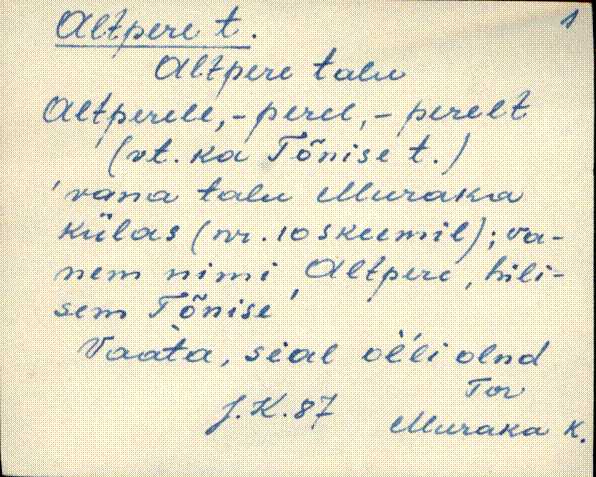 Altpere t. 1
Altpere talu
Altperele, -perel, -perelt
(vt. ka Tõnise t.)
'vana talu Muraka
külas (nr. 10 skeemil); va-
nem nimi Altpere, hili-
sem Tõnise'
Vaata, sial olli olnd
J. K. 87 Tor
Muraka K.